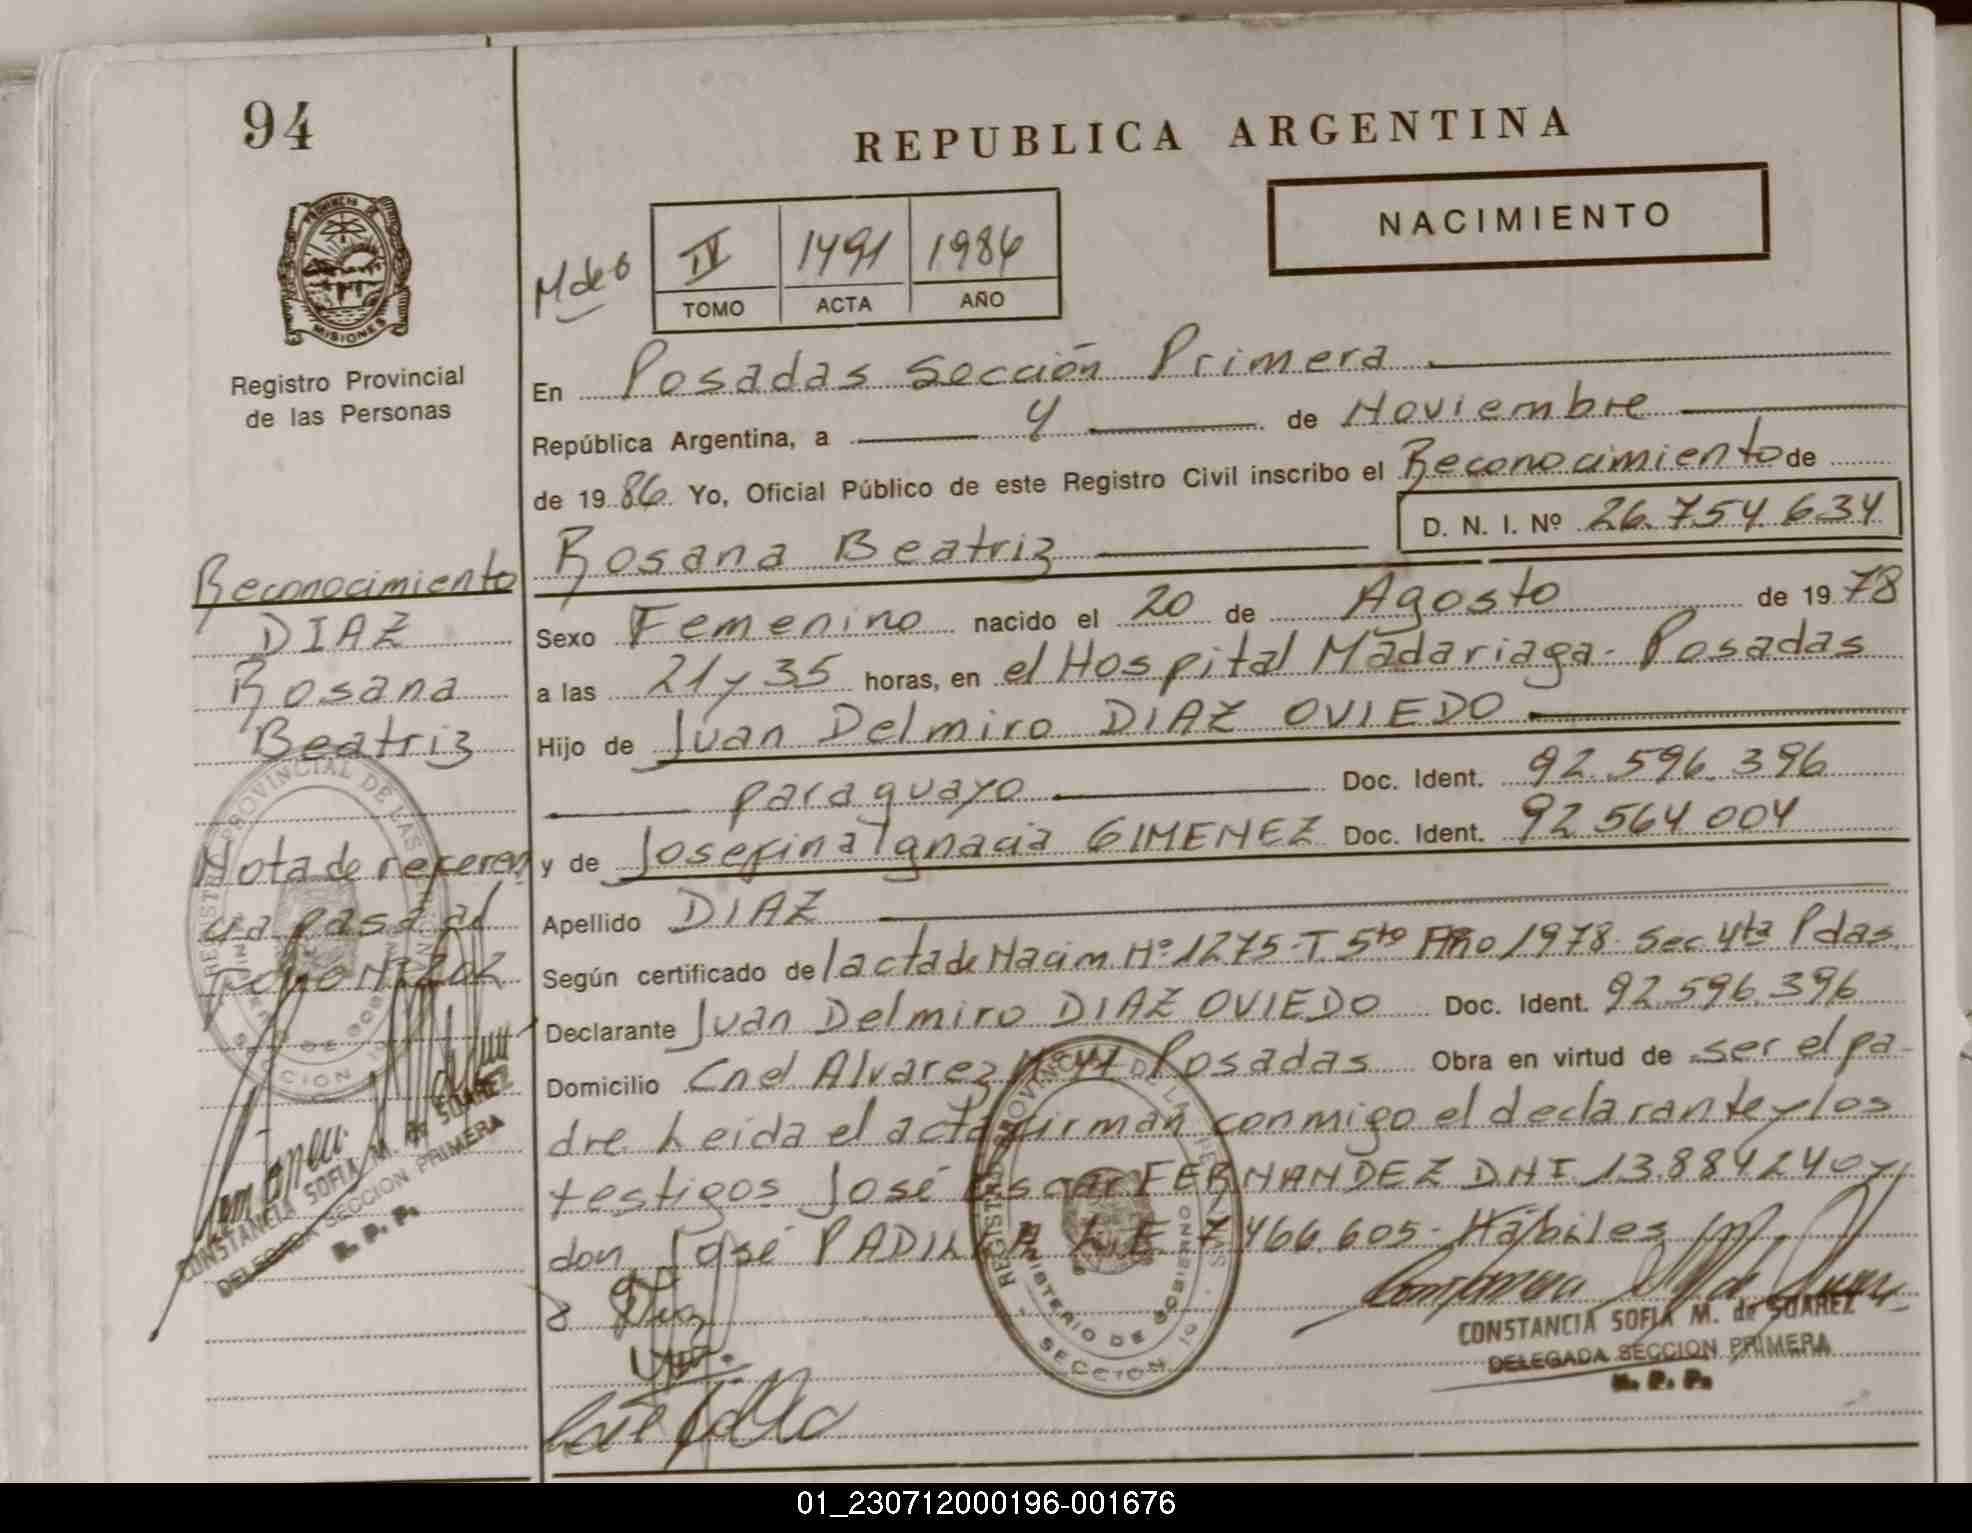 94
REPUBLICA ARGENTINA
NACIMIENTO
PROVINCIA DE
MISIONES
Registro Provincial
de las Personas
IV 1491 1986
TOMO ACTA AÑO
En Posadas Sección Primera
República Argentina, a 4 de Noviembre
de 1986. Yo, Oficial Público de este Registro Civil inscribo el Reconocimiento de
D. N. I. Nº 26.754.634
Rosana Beatriz
Sexo Femenino nacido el 20 de Agosto de 1978
a las 21 y 35 horas, en el Hospital Madariaga - Posadas
Hijo de Juan Delmiro DIAZ OVIEDO
paraguayo Doc. Ident. 92.596.396
y de Josefina Ignacia GIMENEZ Doc. Ident. 92.564.004
Apellido DIAZ
Según certificado del acta de Nacim. Nº 1275-T. 5to Año 1978 - Sec 4ta Pdas.
Declarante Juan Delmiro DIAZ OVIEDO Doc. Ident. 92.596.396
Domicilio Cnel Alvarez Posadas Obra en virtud de ser el pa-
dre. Leida el acta firman conmigo el declarante y los
testigos José FERNANDEZ DNI. 13.884.240 y
don José PADILLA L.E. 7.466.605 - Hábiles
Reconocimiento
DIAZ
Rosana
Beatriz
Nota de referen
cia pasa al
Tomo
CONSTANCIA SOFIA M. de SUAREZ
DELEGADA SECCION PRIMERA
R. P. P.
CONSTANCIA SOFIA M. de SUAREZ
DELEGADA SECCION PRIMERA
R. P. P.
MINISTERIO DE GOBIERNO
SECCION 1º
01_230712000196-001676